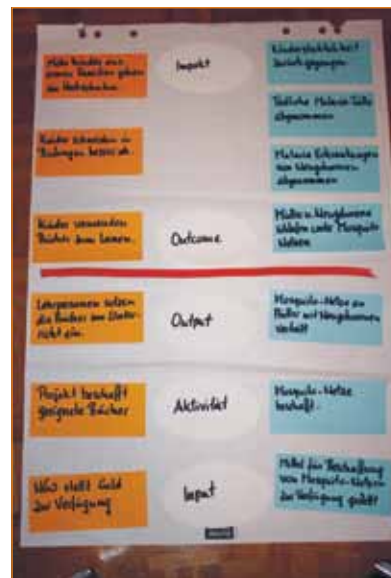 Mehr Kinder aus
armen Familien gehen
in Hochschulen.
Impakt
Kindersterblichkeit
zurückgegangen
Tödliche Malaria-Fälle
abgenommen
Kinder schneiden in
Prüfungen besser ab.
Malaria Erkrankungen
von Neugeborenen
abgenommen
Kinder verwenden
Bücher zum Lernen.
Outcome
Mütter u. Neugeborene
schlafen unter Mosquito-
Netzen
Lehrpersonen setzen
die Bücher im Unter-
richt ein.
Output
Mosquito-Netze an
Mütter mit Neugeborenen
verteilt
Projekt beschafft
geeignete Bücher
Aktivität
Mosquito-Netze
beschafft.
stellt Geld
zur Verfügung
Input
Mittel für Beschaffung
von Mosquito-Netzen
zur Verfügung gestellt